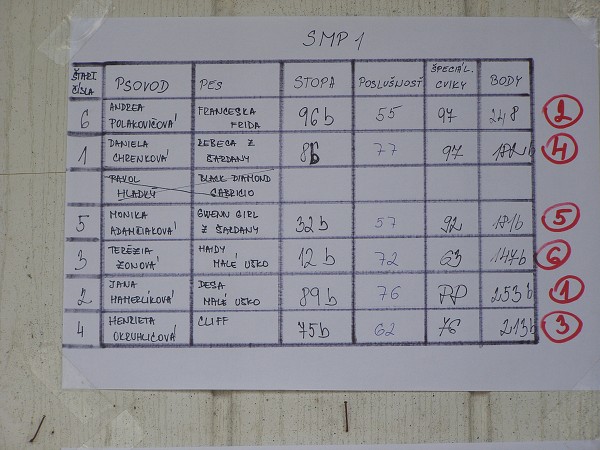 SMP 1
ŠTART. ČÍSLA PSOVOD PES STOPA POSLUŠNOSŤ ŠPECIÁL. CVIKY BODY
6 ANDREA POLAKOVIČOVÁ FRANCESKA FRIDA 96b 55 97 248 2
1 DANIELA CHRENKOVÁ REBECA Z ŠARDANY 8b 77 97 182b 4
PAVOL HLADKÝ BLACK DIAMOND CABRICIO
5 MONIKA ADAMČIAKOVÁ GWENN GIRL Z ŠARDANY 32b 57 92 181b 5
3 TERÉZIA ZONOVÁ HAIDY MALÉ UŠKO 12b 72 63 147b 6
2 JANA HAMERLÍKOVÁ DESA MALÉ UŠKO 89b 76 253b 1
4 HENRIETA OKRUHLICOVÁ CLIFF 75b 62 76 213b 3